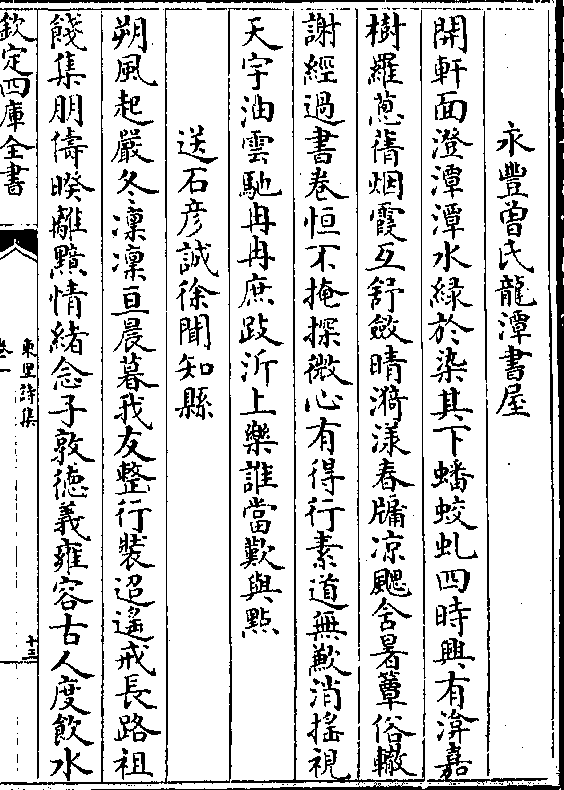 永豐曾氏龍潭書屋
開軒面澄潭潭水緑於染其下蟠蛟虬四時興有渰嘉
樹羅蔥蒨烟霞互舒斂晴漪漾春牗凉颸舍暑簟俗轍
謝經過書卷恒不掩探微心有得行素道無歉消摇視
天宇油雲馳冉冉庶跂沂上樂誰當歎與㸃
送石彦誠徐聞知縣
朔風起嚴冬凛凛亘晨暮我友整行裝迢遥戒長路祖
餞集朋儔暌離黯情緒念子敦徳義雍容古人度飲水
欽定四庫全書
東里詩集
卷一
十三